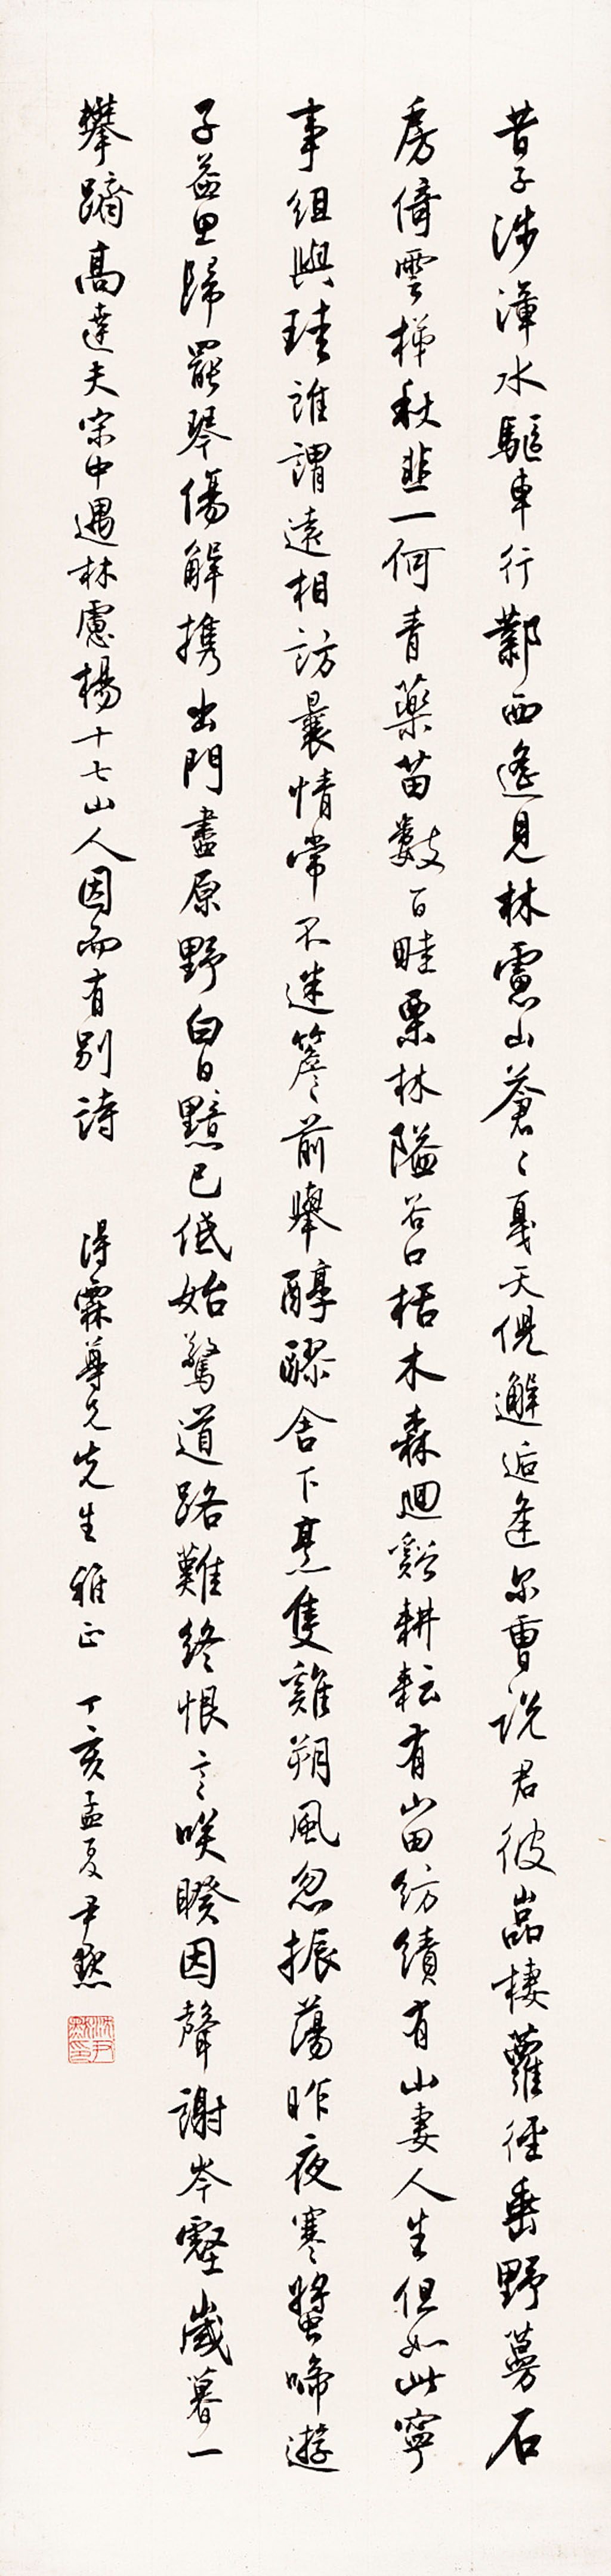 昔子涉漳水驅車行鄴西遙見林慮山蒼〻戛天倪邂逅逢尔曹說君彼嵓棲蘿徑垂野蔓石
房倚雲梯秋韭一何青藥苗數百畦栗林隘谷口栝木森迴谿耕耘有山田紡績有山妻人生但如此寧
事組與珪誰謂遠相訪曩情常不迷簷前舉醇醪舍下烹隻雞朔風忽振蕩昨夜寒螿啼遊
子益思歸罷琴傷解攜出門盡原野白日黯已低始驚道路難終恨言笑暌因聲謝岑壑歲暮一
攀躋高達夫宋中遇林慮楊十七山人因而有別詩
得霖尊兄先生雅正 丁亥孟夏尹默
沈尹默印